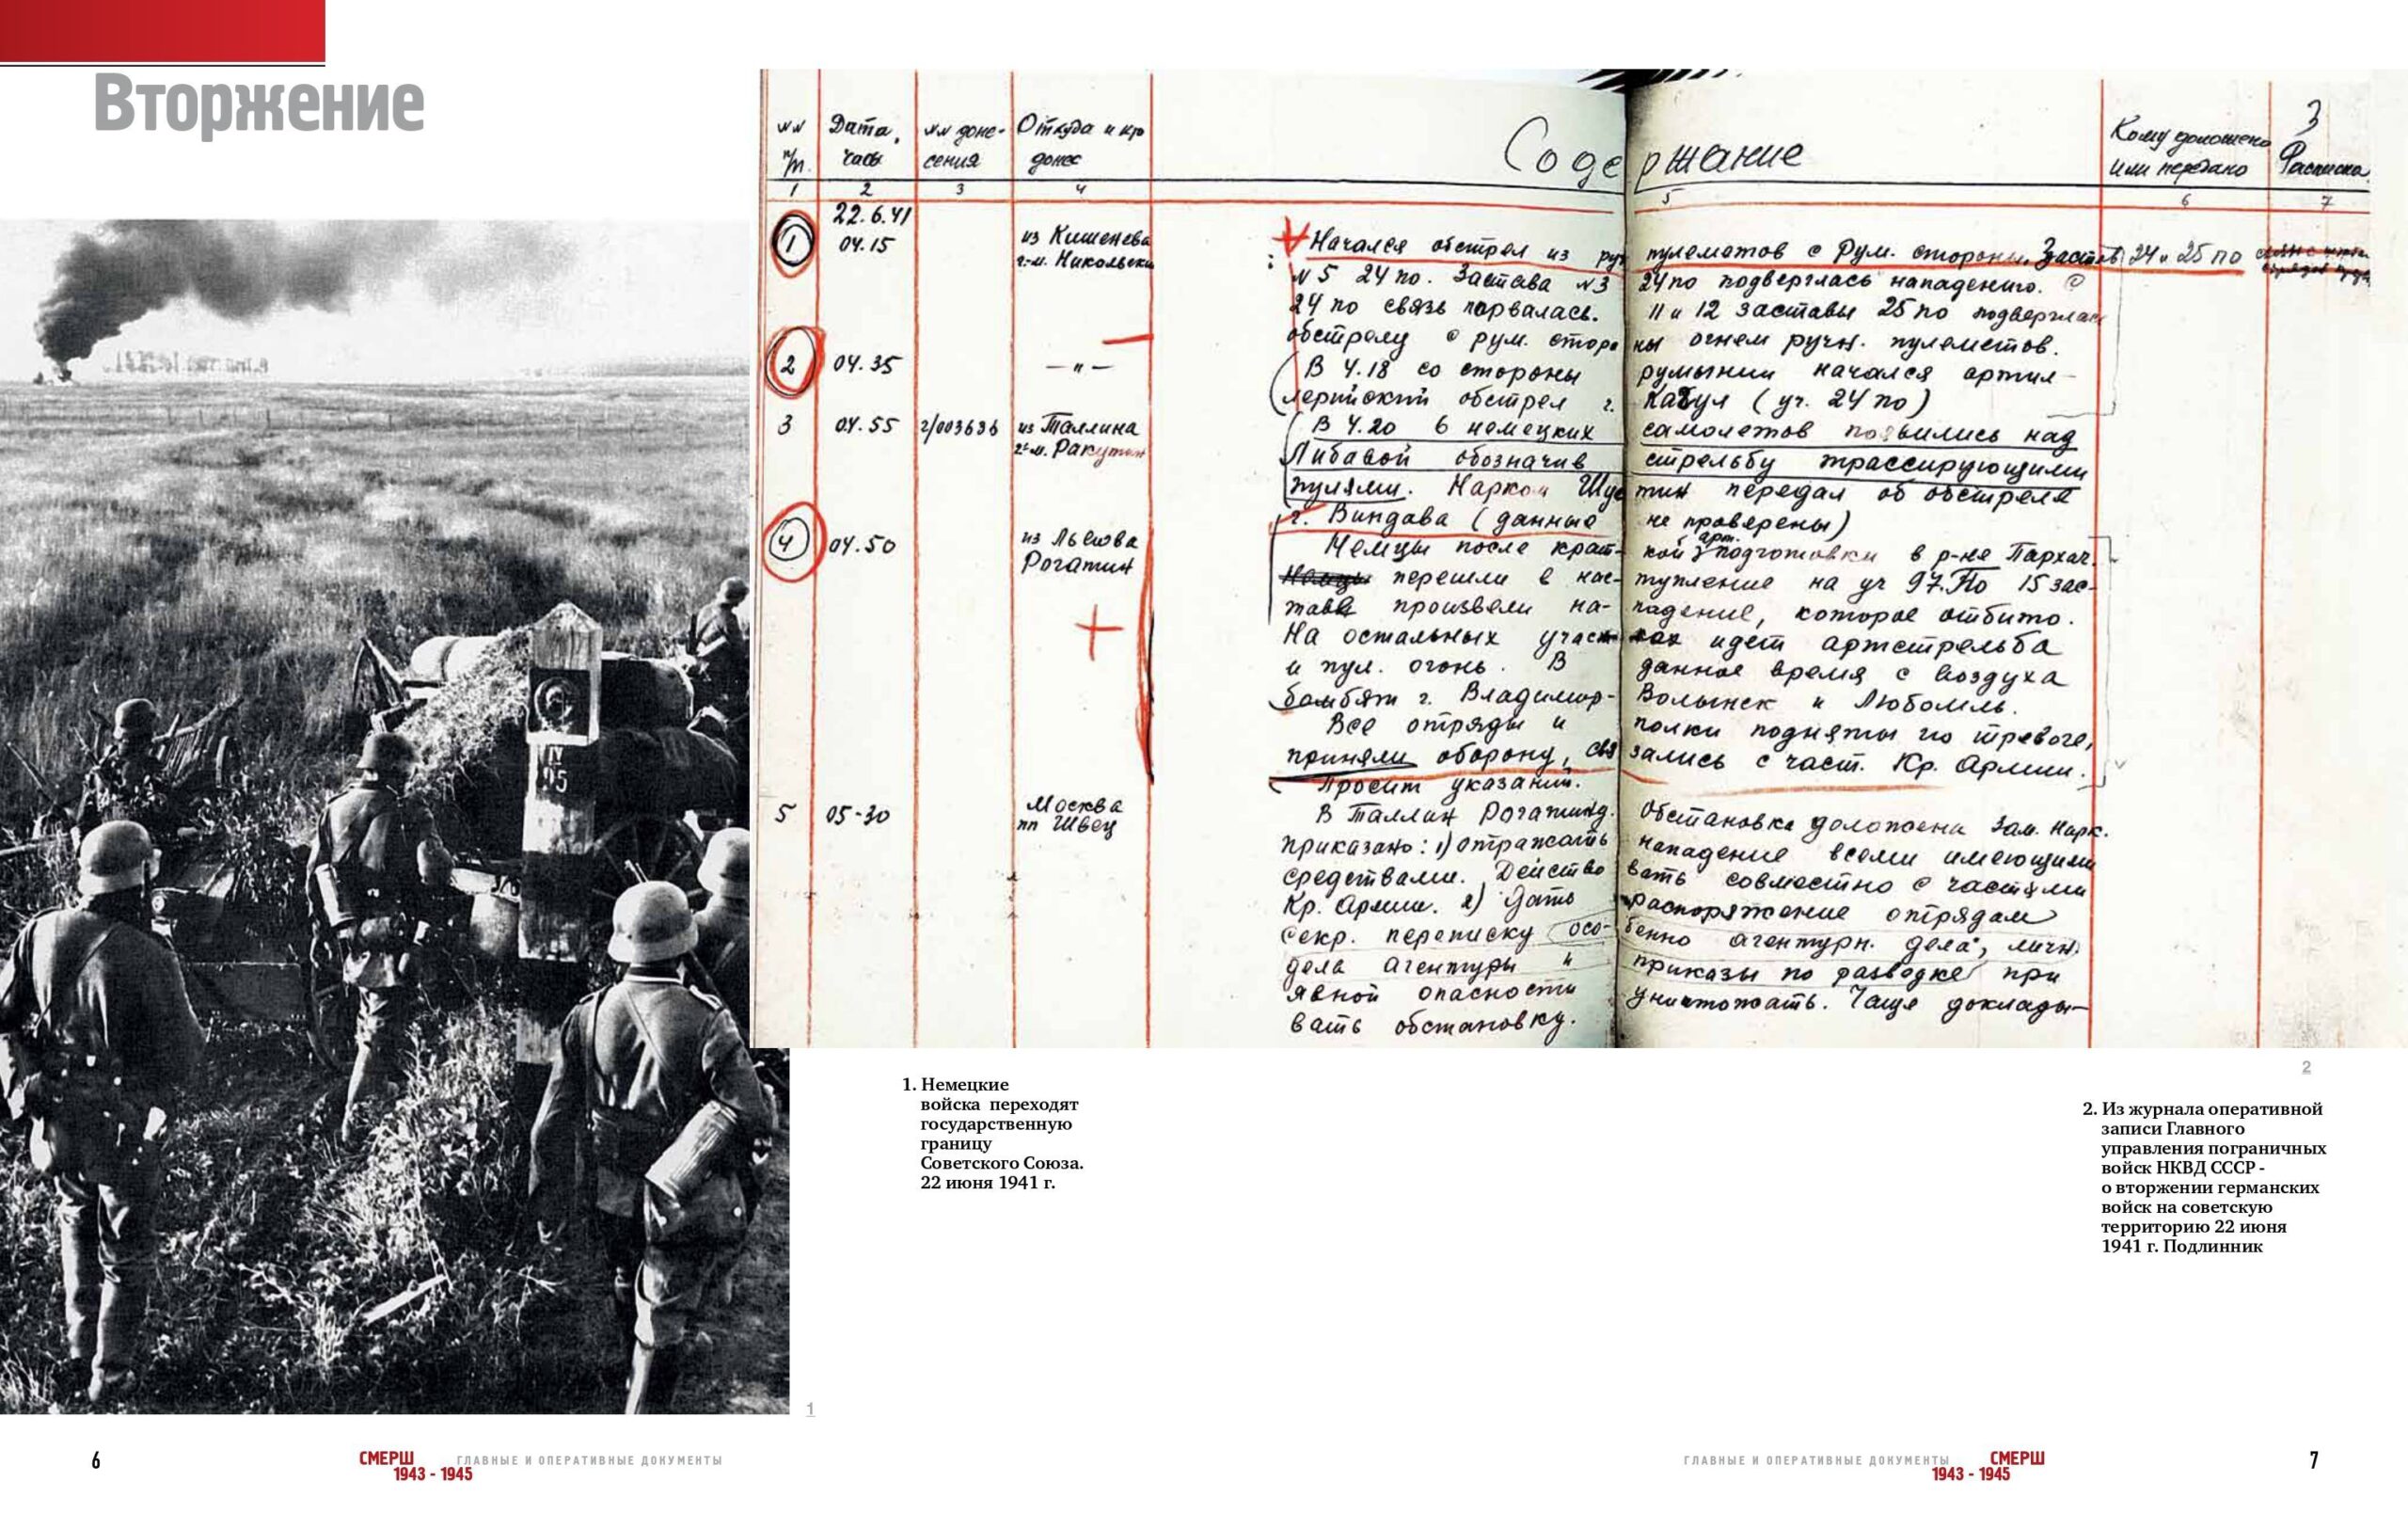 Вторжение
№№ п/п.
Дата, часы
№№ доне-
сения
Откуда и кто
донес
Содержание
Кому доложено
или передано
3
Расписка
1 2 3 4 5 6 7
1 22.6.41
04.15
из Кишенева
г.-м. Никольский
Начался обстрел из руч пулеметов с Рум. стороны. Застав 24 и 25 по
№ 5 24 по. Застава №3 24 по подверглась нападению. С
24 по связь порвалась. 11 и 12 заставы 25 по подверглась
обстрелу с рум. стороны огнем ручн. пулеметов.
2 04.35 — " —
В 4.18 со стороны румынии начался артил-
лерийский обстрел г. Кагул (уч. 24 по)
3 04.55 2/003636 из Таллина
г.-м. Ракутин
В 4.20 6 немецких самолетов появились над
Либавой обозначив стрельбу трассирующими
пулями. Нарком Шустин передал об обстреле
г. Виндава (данные не проверены)
4 04.50 из Львова
Рогатин
Немцы после крат- кой арт. подготовки в р-не Пархач
перешли в нас- тупление на уч 97.По 15 зас-
таве произвели на- падение, которое отбито.
На остальных участках идет артстрельба
и пул. огонь. В данное время с воздуха
бомбят г. Владимир- Волынск и Любомль.
Все отряды и полки подняты по тревоге,
приняли оборону, связались с част. Кр. Армии.
Просит указаний.
5 05-30 Москва
пп Швец
В Таллин Рогатину. Обстановка доложена Зам. Нарк.
приказано: 1) отражать нападение всеми имеющими
средствами. Действовать совместно с частями
Кр. Армии. 2) Дать распоряжение отрядам
секр. переписку осо- бенно агентурн. дела, личн.
дела агентуры и приказы по разведке при
явной опасности уничтожать. Чаще доклады-
вать обстановку.
IV
95
1
2
1. Немецкие
войска переходят
государственную
границу
Советского Союза.
22 июня 1941 г.
2. Из журнала оперативной
записи Главного
управления пограничных
войск НКВД СССР -
о вторжении германских
войск на советскую
территорию 22 июня
1941 г. Подлинник
6
СМЕРШ
1943 - 1945
ГЛАВНЫЕ И ОПЕРАТИВНЫЕ ДОКУМЕНТЫ
ГЛАВНЫЕ И ОПЕРАТИВНЫЕ ДОКУМЕНТЫ
СМЕРШ
1943 - 1945
7